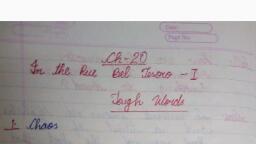 Date:
Page No.
Ch-20
In the Rue Del Tesoro - I
Tough Words
1. Chaos